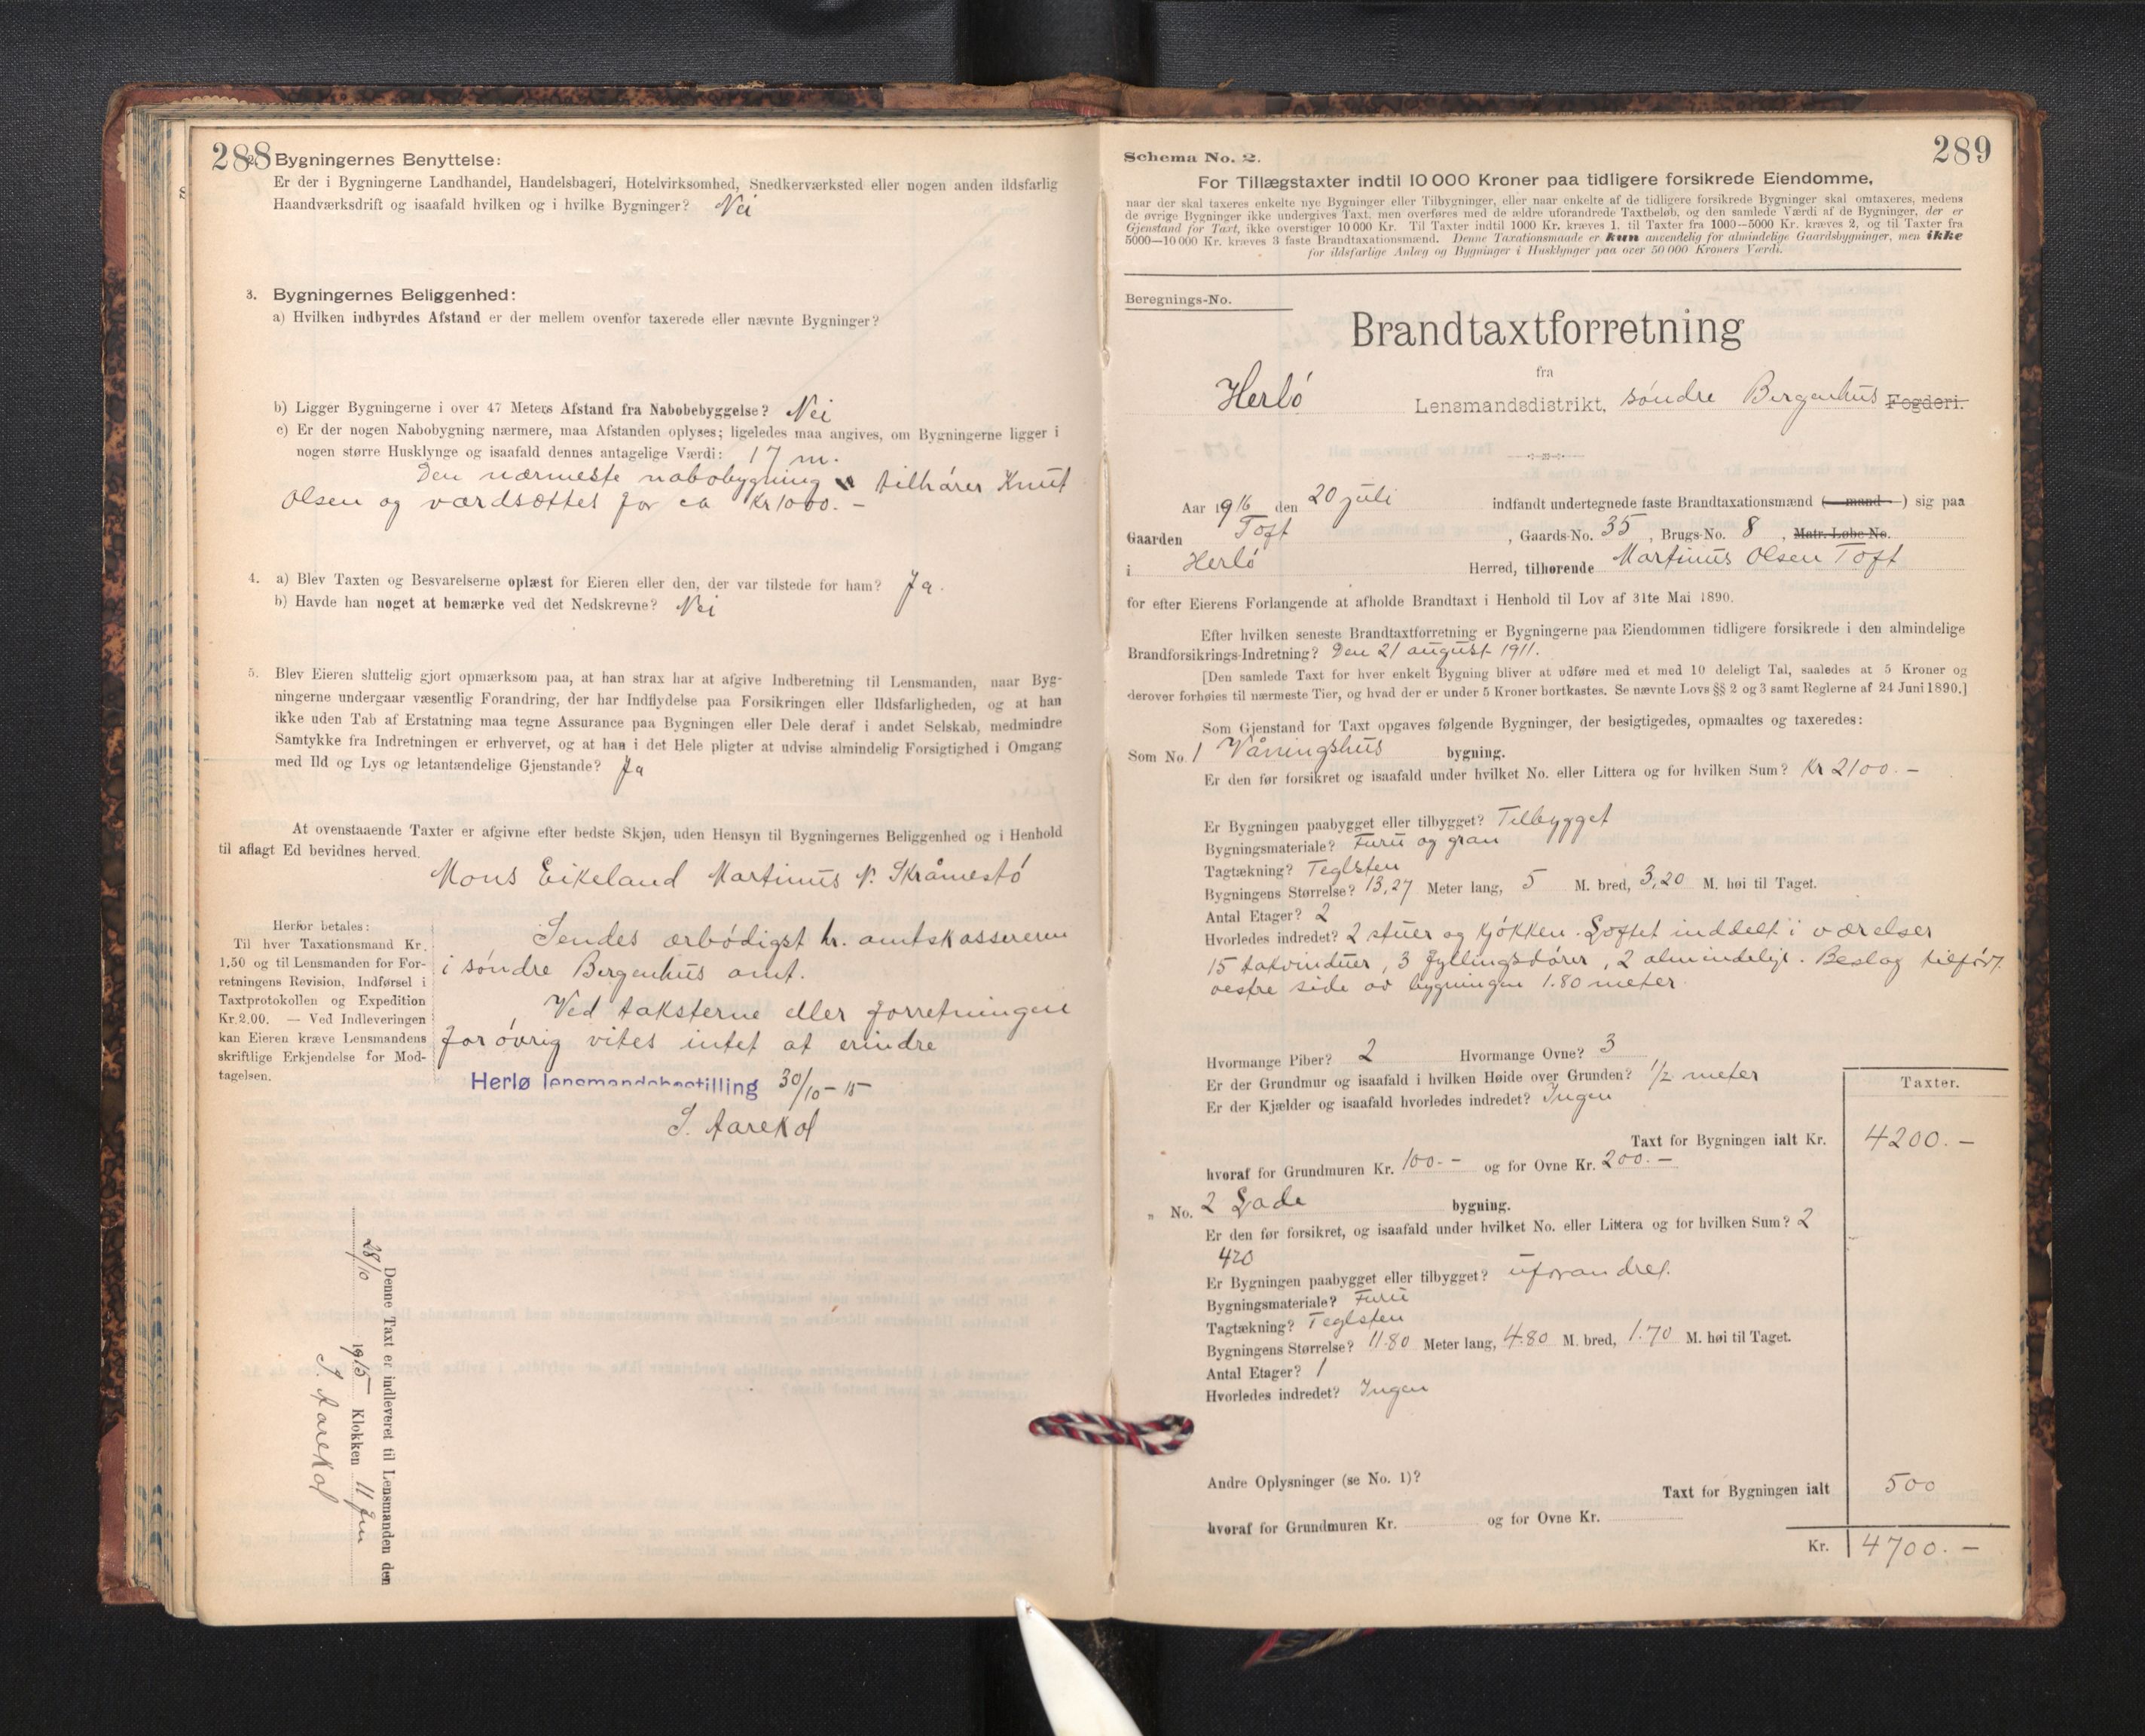 288
2. Bygningernes Benyttelse:
Er der i Bygningerne Landhandel, Handelsbageri, Hotelvirksomhed, Snedkerværksted eller nogen anden ildsfarlig
Haandværksdrift og isaafald hvilken og i hvilke Bygninger? Nei
3. Bygningernes Beliggenhed:
a) Hvilken indbyrdes Afstand er der mellem ovenfor taxerede eller nævnte Bygninger?
b) Ligger Bygningerne i over 47 Meters Afstand fra Nabobebyggelse? Nei
c) Er der nogen Nabobygning nærmere, maa Afstanden oplyses; ligeledes maa angives, om Bygningerne ligger i
nogen større Husklynge og isaafald dennes antagelige Værdi: 17 m.
Den nærmeste nabobygning tilhører Knut
Olsen og værdsættes for ca Kr 1000.-
4. a) Blev Taxten og Besvarelserne oplæst for Eieren eller den, der var tilstede for ham? Ja.
b) Havde han noget at bemærke ved det Nedskrevne? Nei
5. Blev Eieren sluttelig gjort opmærksom paa, at han strax har at afgive Indberetning til Lensmanden, naar Byg-
ningerne undergaar væsentlig Forandring, der har Indflydelse paa Forsikringen eller Ildsfarligheden, og at han
ikke uden Tab af Erstatning maa tegne Assurance paa Bygningen eller Dele deraf i andet Selskab, medmindre
Samtykke fra Indretningen er erhvervet, og at han i det Hele pligter at udvise almindelig Forsigtighed i Omgang
med Ild og Lys og letantændelige Gjenstande? Ja
At ovenstaaende Taxter er afgivne efter bedste Skjøn, uden Hensyn til Bygningernes Beliggenhed og i Henhold
til aflagt Ed bevidnes herved.
Mons Eikeland Martinus N. Skråmestö
Herfor betales:
Til hver Taxationsmand Kr.
1,50 og til Lensmanden for For-
retningens Revision, Indførsel i
Taxtprotokollen og Expedition
Kr. 2.00. — Ved Indleveringen
kan Eieren kræve Lensmandens
skriftlige Erkjendelse for Mod-
tagelsen.
Sendes ærbödigst hr. amtskassereren
i söndre Bergenhus amt.
Ved taksterne eller forretningen
for övrig vites intet at erindre
Herlø lensmandsbestilling 30/10 - 15
S. Aarekol
Denne Taxt er indleveret til Lensmanden den
28/10 1915 Klokken 11 fm
S. Aarekol
289
Schema No. 2.
For Tillægstaxter indtil 10 000 Kroner paa tidligere forsikrede Eiendomme,
naar der skal taxeres enkelte nye Bygninger eller Tilbygninger, eller naar enkelte af de tidligere forsikrede Bygninger skal omtaxeres, medens
de øvrige Bygninger ikke undergives Taxt, men overføres med de ældre uforandrede Taxtbeløb, og den samlede Værdi af de Bygninger, der er
Gjenstand for Taxt, ikke overstiger 10 000 Kr. Til Taxter indtil 1000 Kr. kræves 1, til Taxter fra 1000—5000 Kr. kræves 2, og til Taxter fra
5000—10 000 Kr. kræves 3 faste Brandtaxationsmænd. Denne Taxationsmaade er kun anvendelig for almindelige Gaardsbygninger, men ikke
for ildsfarlige Anlæg og Bygninger i Husklynger paa over 50 000 Kroners Værdi.
Beregnings-No.
Brandtaxtforretning
fra
Herlö Lensmandsdistrikt, söndre Bergenhus Fogderi.
Aar 1916 den 20 juli indfandt undertegnede faste Brandtaxationsmænd (— mand —) sig paa
Gaarden Toft, Gaards-No. 35, Brugs-No. 8, Matr. Løbe-No.
i Herlö Herred, tilhørende Martinus Olsen Toft
for efter Eierens Forlangende at afholde Brandtaxt i Henhold til Lov af 31te Mai 1890.
Efter hvilken seneste Brandtaxtforretning er Bygningerne paa Eiendommen tidligere forsikrede i den almindelige
Brandforsikrings-Indretning? Den 21 august 1911.
[Den samlede Taxt for hver enkelt Bygning bliver at udføre med et med 10 deleligt Tal, saaledes at 5 Kroner og
derover forhøies til nærmeste Tier, og hvad der er under 5 Kroner bortkastes. Se nævnte Lovs §§ 2 og 3 samt Reglerne af 24 Juni 1890.]
Som Gjenstand for Taxt opgaves følgende Bygninger, der besigtigedes, opmaaltes og taxeredes:
Som No. 1 Våningshus bygning.
Er den før forsikret og isaafald under hvilket No. eller Littera og for hvilken Sum? Kr 2100.-
Er Bygningen paabygget eller tilbygget? Tilbygget
Bygningsmateriale? Furu og gran
Tagtækning? Teglsten
Bygningens Størrelse? 13,27 Meter lang, 5 M. bred, 3,20 M. høi til Taget.
Antal Etager? 2
Hvorledes indredet? 2 stuer og kjökken. Loftet inddelt i værelser
15 vinduer, 3 fyllingsdörer, 2 almindelige. Beslag tilført
vestre side av bygningen 1.80 meter.
Hvormange Piber? 2 Hvormange Ovne? 3
Er der Grundmur og isaafald i hvilken Høide over Grunden? 1/2 meter
Er der Kjælder og isaafald hvorledes indredet? Ingen
Taxter.
Taxt for Bygningen ialt Kr. 4200.-
hvoraf for Grundmuren Kr. 100.- og for Ovne Kr. 200.-
" No. 2 Lade bygning.
Er den før forsikret, og isaafald under hvilket No. eller Littera og for hvilken Sum? 2
420
Er Bygningen paabygget eller tilbygget? uforandret.
Bygningsmateriale? Furu
Tagtækning? Teglsten
Bygningens Størrelse? 11.80 Meter lang, 4.80 M. bred, 1.70 M. høi til Taget.
Antal Etager? 1
Hvorledes indredet? Ingen
Andre Oplysninger (se No. 1)?
Taxt for Bygningen ialt 500
hvoraf for Grundmuren Kr. og for Ovne Kr.
Kr. 4700.-